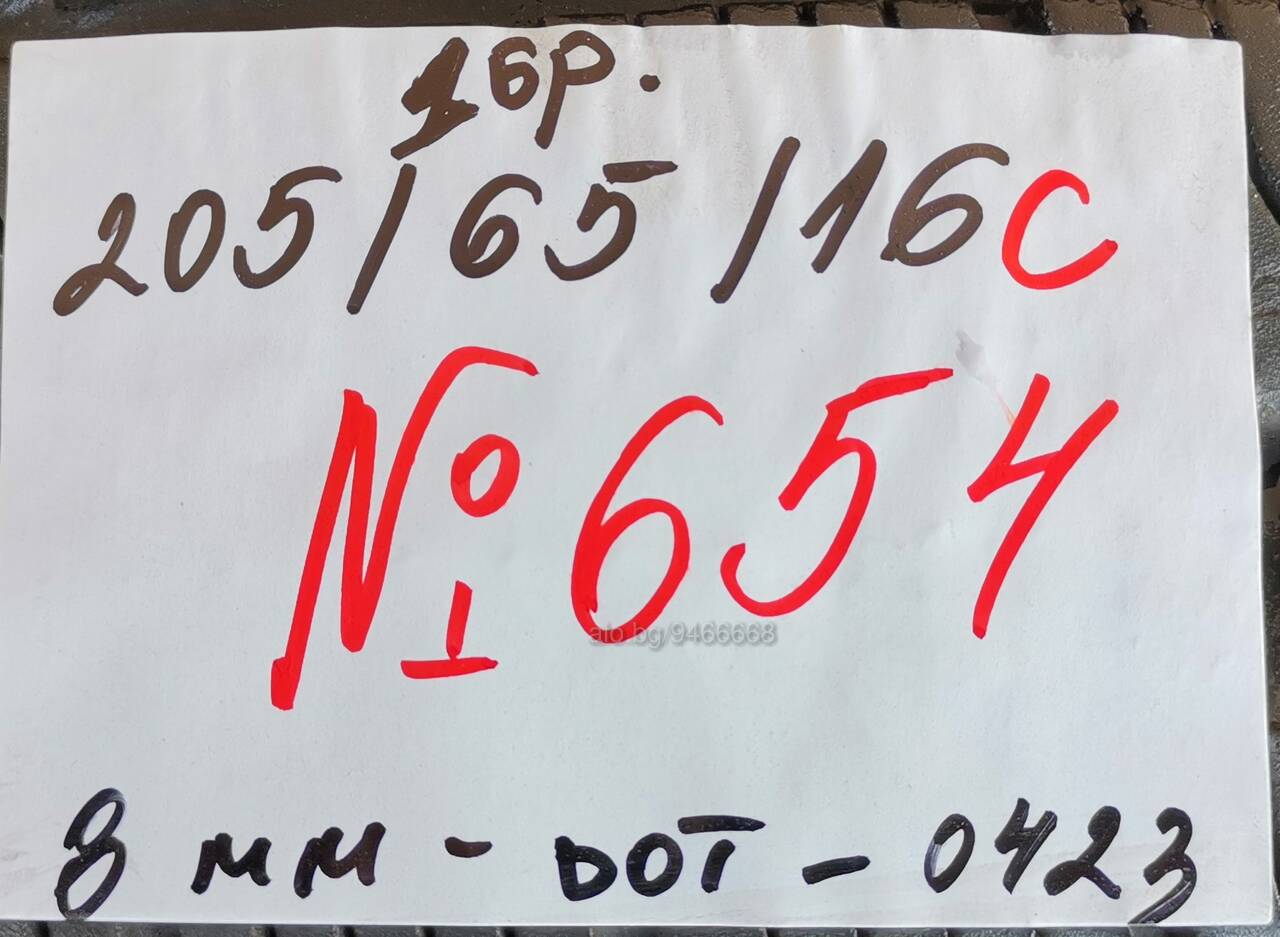 1бр.
205/65/16C
№ 654
alo.bg/9466668
8 мм - DOT - 0423